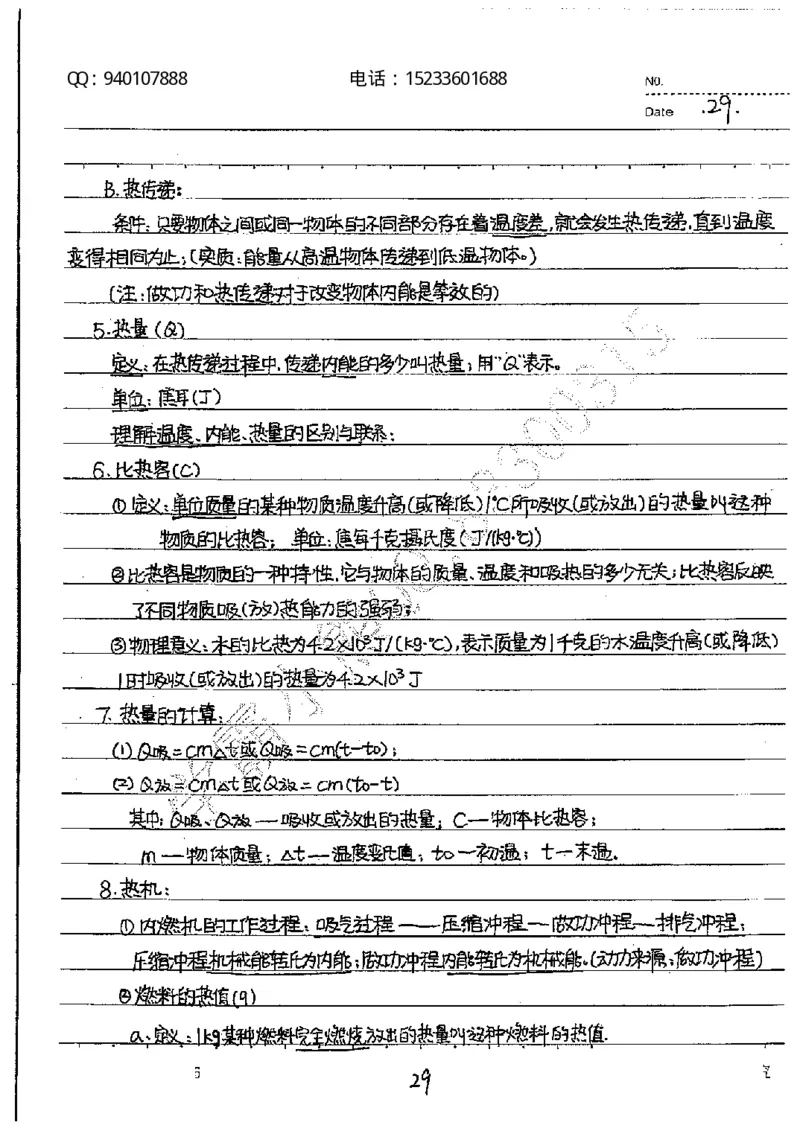 QQ：940107888 电话：15233601688 No.
Date .29.
B.热传递：
条件：只要物体之间或同一物体的不同部分存在着温度差，就会发生热传递，直到温度
变得相同为止；（实质：能量从高温物体传递到低温物体。）
（注：做功和热传递对于改变物体内能是等效的）
5.热量（Q）
定义：在热传递过程中，传递内能的多少叫热量；用"Q"表示。
单位：焦耳（J）
理解温度、内能、热量的区别与联系：
6.比热容（C）
①定义：单位质量的某种物质温度升高（或降低）1℃所吸收（或放出）的热量叫这种
物质的比热容；单位：焦每千克摄氏度（J/(kg·℃)）
②比热容是物质的一种特性，它与物体的质量、温度和吸热的多少无关；比热容反映
了不同物质吸（放）热能力的强弱；
③物理意义：水的比热为4.2×10³J/(kg·℃)，表示质量为1千克的水温度升高（或降低）
1时吸收（或放出）的热量为4.2×10³J
7.热量的计算：
(1) Q吸=cm△t或Q吸=cm(t-t0)；
(2) Q放=cm△t或Q放=cm(t0-t)
其中：Q吸、Q放—吸收或放出的热量；C—物体比热容；
m—物体质量；△t—温度变化值；t0—初温；t—末温。
8.热机：
①内燃机的工作过程：吸气过程——压缩冲程—做功冲程—排气冲程；
压缩冲程机械能转化为内能；做功冲程内能转化为机械能。（动力来源：做功冲程）
②燃料的热值(q)
a、定义：1kg某种燃料完全燃烧放出的热量叫这种燃料的热值.
29